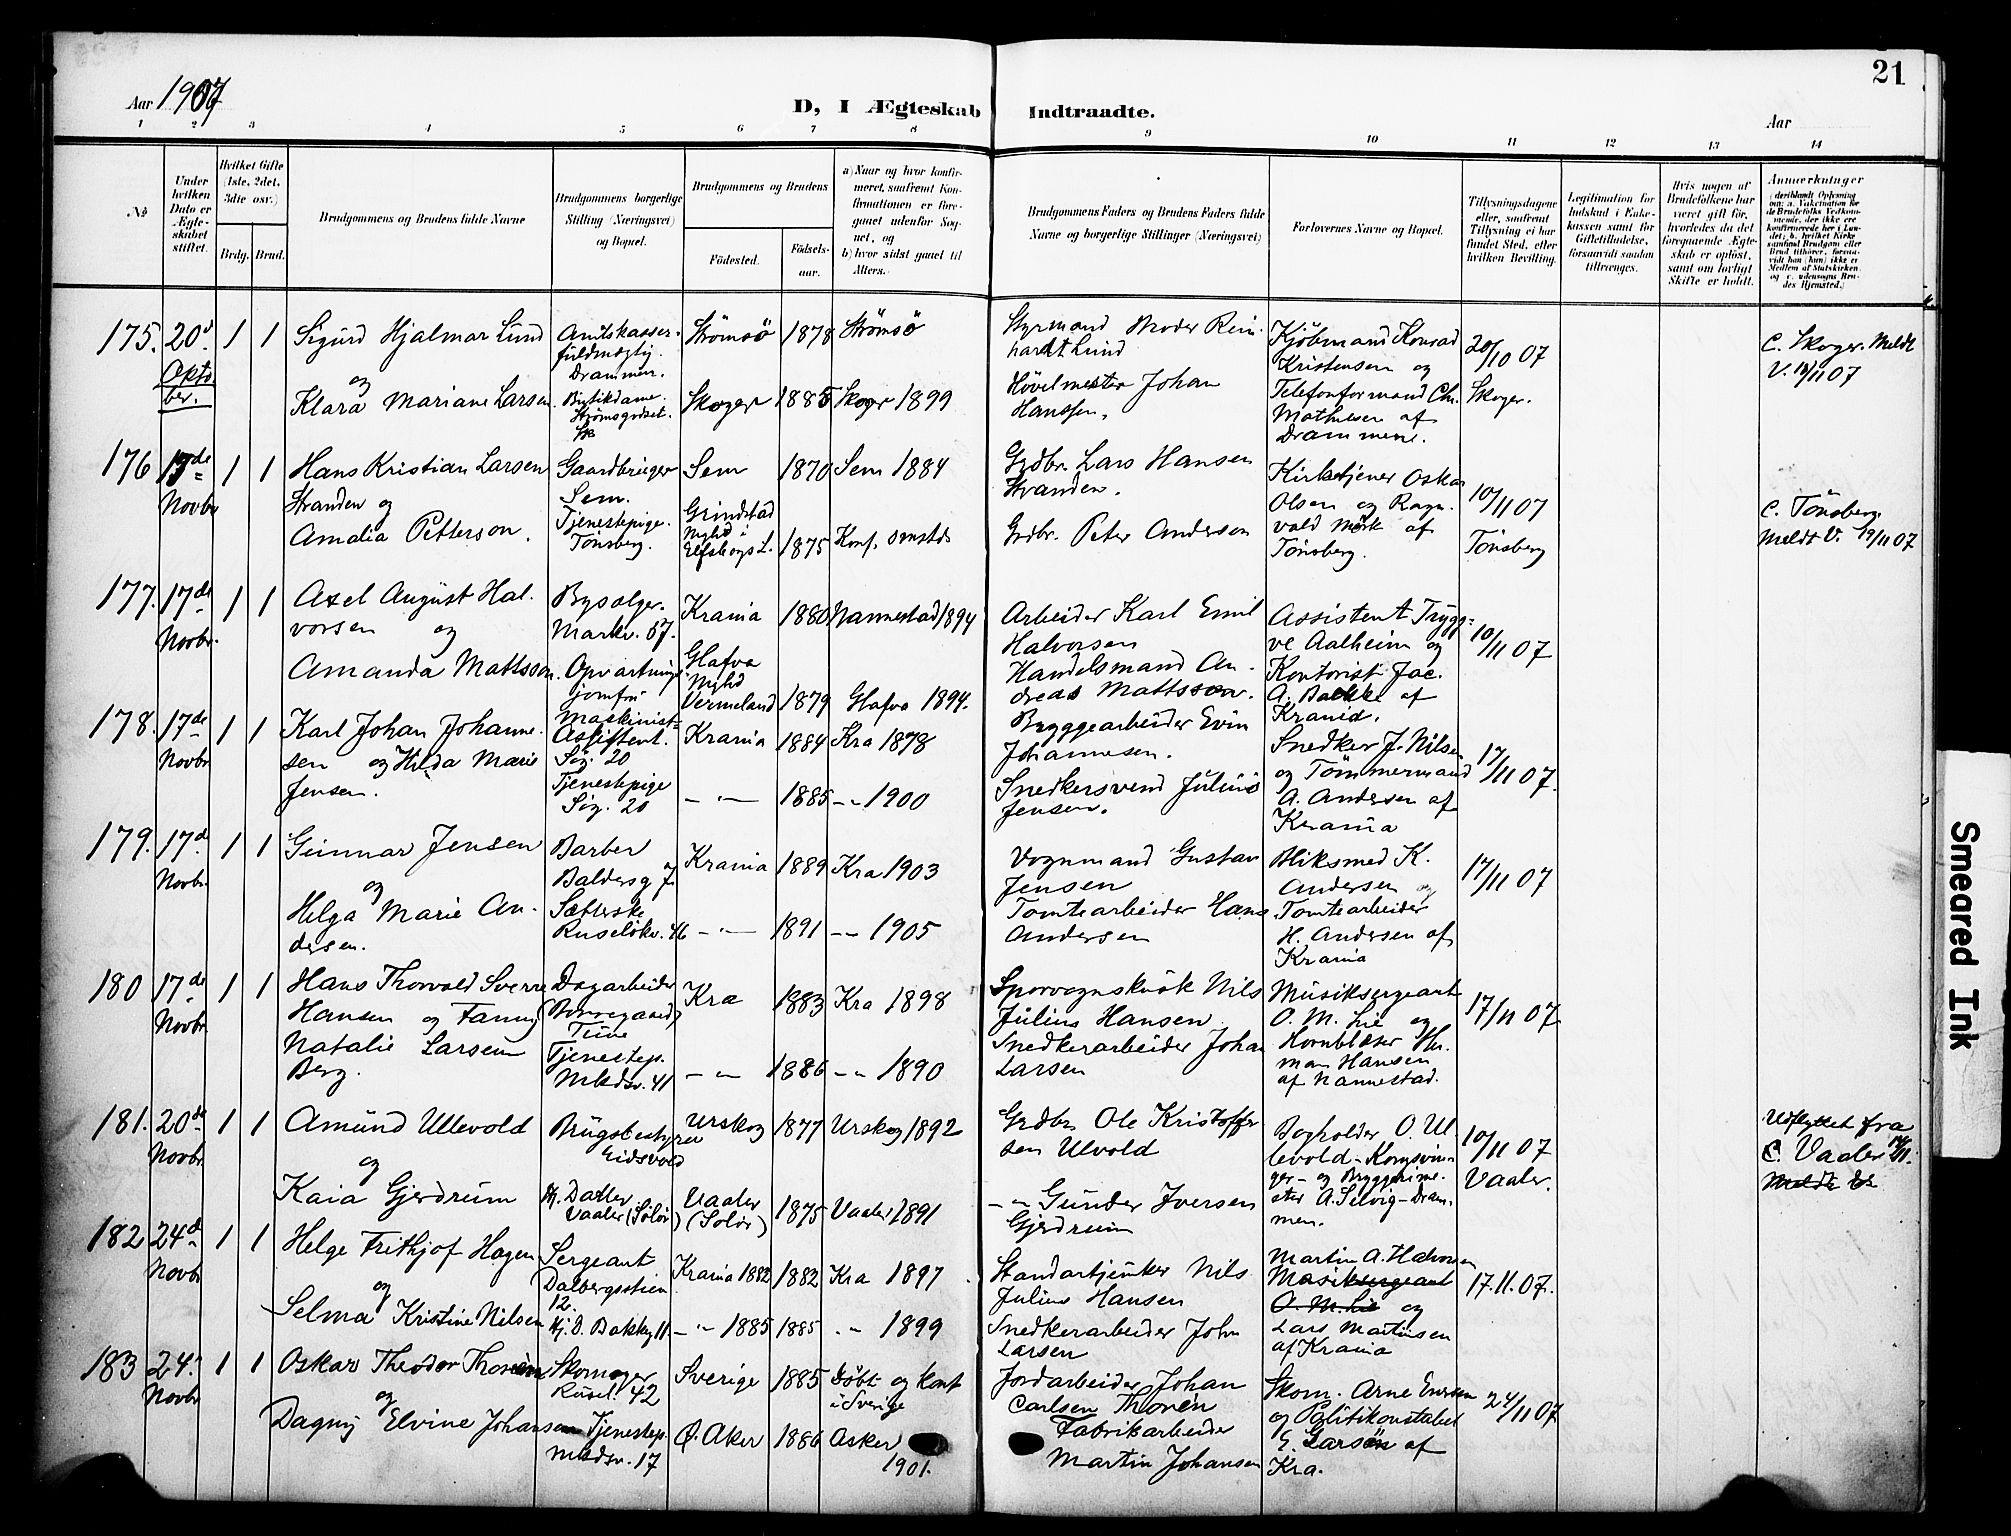 21
Aar 1907
D, I Ægteskab Indtraadte.
Aar
1 2 3 4 5 6 7 8 9 10 11 12 13 14
No
Under hvilken Dato er Ægteskabet stiftet.
Hvilket Gifte (1ste, 2det, 3die osv.)
Brdg. Brud.
Brudgommens og Brudens fulde Navne
Brudgommens borgerlige Stilling (Næringsvei) og Bopæl.
Brudgommens og Brudens
Födested. Födselsaar.
a) Naar og hvor konfirmeret, saafremt Konfirmationen er foregaaet udenfor Sognet, og
b) hvor sidst gaaet til Alters.
Brudgommens Faders og Brudens Faders fulde Navne og borgerlige Stillinger (Næringsvei)
Forlovernes Navne og Bopæl.
Tillysningsdagene eller, saafremt Tillysning ei har fundet Sted, efter hvilken Bevilling.
Legitimation for Indskud i Enkekassen samt for Giftetilladelse, forsaavidt saadan tiltrænges.
Hvis nogen af Brudefolkene har været gift för, hvorledes da det foregaaende Ægteskab er oplöst, samt om lovligt Skifte er holdt.
Anmærkninger
175. 20d Oktober. 1 1
Sigurd Hjalmar Lund
og
Klara Mariane Larsen
Amtskasserfuldmægtig. Drammen.
Butikdame. Strömsgodset.
Strömsö 1878 Strömsö
Skoger 1885 Skoger 1899
Styrmand Moder Reinhardt Lund
Hövelmester Johan Hanssen.
Kjöbmand Konrad Kristensen og Telefonformand Chr. Mathisen af Drammene.
20/10 07 Skoger.
C. Skoger. Meldt V. 18/11 07
176 17de Novbr 1 1
Hans Kristian Larsen Stranden og
Amalia Petterson.
Gaardbruger Sem.
Tjenestepige. Tönsberg.
Sem 1870 Sem 1884
Grindstad Mghd i Elfsborgs L. 1875 Konf. smstds
Grdbr. Lars Hansen Stranden.
Grdbr. Peter Andersen
Kirketjener Oskar Olsen og Ragnvald Mörk af Tönsberg.
10/11 07 Tönsberg
C. Tönsberg. Meldt V. 19/11 07
177. 17de Novbr. 1 1
Axel August Halvorsen og
Amanda Mattsson.
Bysælger. Markv. 57.
Opvartningsjomfru
Krania 1880 Nannestad 1894
Glafva Mghd Vermeland 1879 Glafva 1894.
Arbeider Karl Emil Halvorsen
Handelsmand Andreas Mattsson.
Assistent Tryggve Aalheim og Kontorist Jac. A. Bakke af Krania.
10/11 07
178. 17de Novbr 1 1
Karl Johan Johannesen og Hilda Marie Jensen.
Maskinist-Assistent. Sög. 20
Tjenestepige Sög. 20
Krania 1884 Kra 1878
-"- 1885 -"- 1900
Bryggearbeider Evin Johannesen.
Snedkersvend Julius Jensen.
Snedker J. Nilsen og Tömmermand A. Andersen af Krania
17/11 07.
179. 17de Novbr. 1 1
Gunnar Jensen
og
Helga Marie Andersen.
Barber Baldersg 7
Sætterske Ruselökv. 46
Krania 1889 Kra 1903
-"- 1891 -"- 1905
Vognmand Gustav Jensen
Tomtearbeider Hans Andersen
Bliksmed K. Andersen og Tomtearbeider H. Andersen af Krania
17/11 07
180 17de Novbr 1 1
Hans Thorvald Sverre Hansen og Fanny Natalie Larsen Berg.
Dagarbeider (Borregaard) Tune
Tjenestep. Mkdsv. 41
Kra 1883 Kra 1898
-"- 1886 -"- 1890
Sporvognskusk Nils Julius Hansen.
Snedkerarbeider Johan Larsen
Musiksergeant O. M. Lie og Kornblæser Herman Hansen af Nannestad.
17/11 07
181. 20de Novbr 1 1
Amund Ullevold
og
Kaia Gjerdrum
Brugsbestyrer Eidsvold
Hj. Datter Vaaler (Solör)
Urskog 1877 Urskog 1892
Vaaler (Solör) 1875 Vaaler 1891
Grdbr Ole Kristoffersen Ulvold
-"- Gunder Iversen Gjerdrum
Bogholder O. Ullevold - Kongsvinger - og A. Selvig - Drammen.
10/11 07 Vaaler.
Udflyttet fra C. Vaaler
Meldt
182 24de Novbr 1 1
Helge Frithjof Hagen
og
Selma Kristine Nilsen
Sergeant Dalbergsstien 12.
Hj. O. Bakkeg 11
Krania 1882 1882 Kra 1897
-"- 1885 1885 -"- 1899
Standartjunker Nils Julius Hansen
Snedkerarbeider John Larsen
Martin A. Halvorsen Musiksergeant O. M. Lie og Lars Martinsen af Krania
17.11.07.
183 24. Novbr 1 1
Oskar Theodor Thorén
og
Dagny Elvine Johansen
Skomager Rusel. 42
Tjenestep. Mkdsv. 17
Sverige 1885 Döbt og konf i Sverige
Ö. Aker 1886 Asker 1901.
Jordarbeider Johan Carlsen Thorén
Fabrikarbeider Martin Johansen
Skom. Arne Eversen og Politikonstabel E. Larsön af Kra.
24/11 07
Smeared Ink